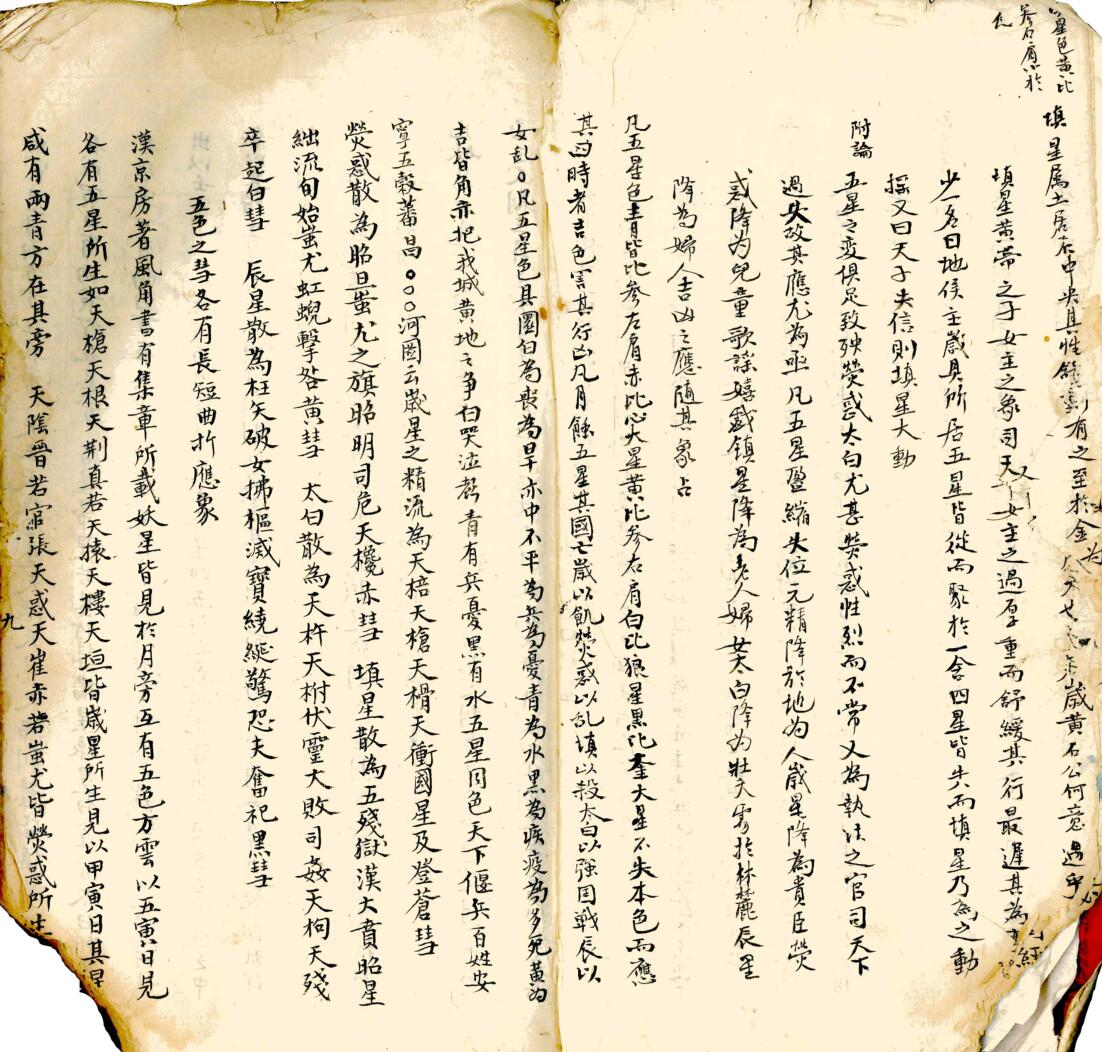 星色黃比
參右肩於
填星屬土居在中央其性 有之至於金 歲黃石公何意遇
填星黃帝之子女主之象司天下女主之過厚重而舒緩其行最遲其為
少一名曰地侯主歲其所居五星皆從而聚於一舍四星皆失而填星乃為之動
搖又曰天子失信則填星大動
附論
五星之變俱足致殃熒惑太白尤甚熒惑性烈而不常又為執法之官司天下
過失故其應尤為亟凡五星盈縮失位元精降於地為人歲星降為貴臣熒
惑降為兒童歌謠嬉戲鎮星降為老人婦女太白降為壯夫 於林麓辰星
降為婦人吉凶之應隨其象占
凡五星色青皆比參左肩赤比心大星黃比參右肩白比狼星黑比奎大星不失本色而應
其四時者吉色害其行凶凡月蝕五星其國亡歲以飢熒惑以乱填以殺太白以强国戰辰以
女乱○凡五星色其圜白為喪為旱赤中不平為兵為憂青為水黑為疾疫為多死黃為
吉皆角赤犯我城黃地之爭白哭泣聲青有兵憂黑有水五星同色天下偃兵百姓安
寧五穀蕃昌○○○河圖云歲星之精流為天棓天槍天猾天衝國星及登蒼彗
熒惑散為昭旦蚩尤之旗昭明司危天欃赤彗 填星散為五殘獄漢大賁昭星
絀流旬始蚩尤虹蜺擊咎黃彗 太白散為天杵天柎伏靈大敗司姦天枸天殘
卒起白彗 辰星散為枉矢破女拂樞滅寶繞綎驚恐夫奮祀黑彗
五色之彗各有長短曲折應象
漢京房著風角書有集章所載妖星皆見於月旁互有五色方雲以五寅日見
各有五星所生如天槍天根天荆真若天猿天樓天垣皆歲星所生見以甲寅日其星
咸有兩青方在其旁 天陰晉若官張天惑天崔赤若蚩尤皆熒惑所生
九